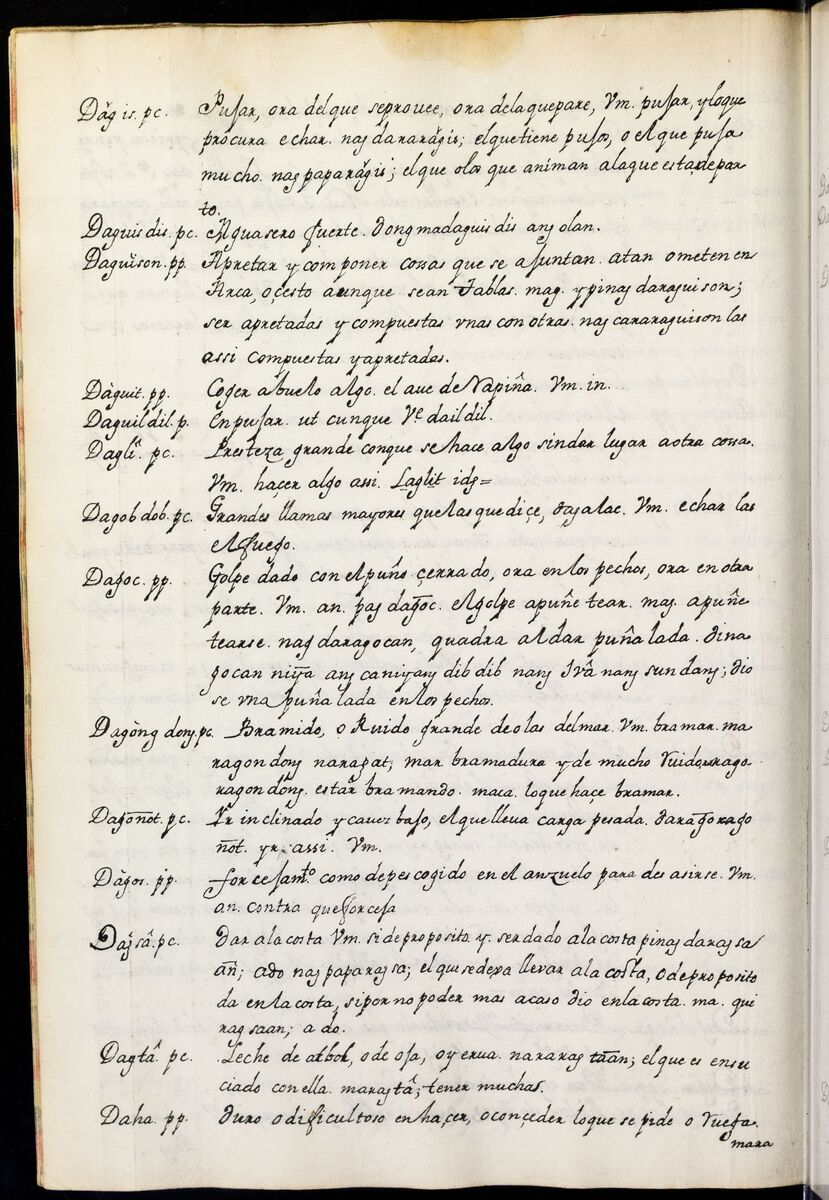 Dãg is. pc. Pujar, ora del que seprouee, ora delaquepare, Vm. pujar, y loque
procura echar. nag dararãgis; elquetiene pujos, o el que puja
mucho. nag paparãgis; el que olos que animan alaque estadepar
to.
Daguis dis. pc. Aguasero fuerte. dong madaguis dis ang olan.
Daguison. pp. Apretar y componer cossas que se ajuntan. atan ometen en
Arca, o cesto aunque sean Tablas. mag. ypinag daraguison;
ser apretadas y compuestas vnas con otras. nag cararaguison las
assi compuestas yapretadas.
Dàguit. pp. Coger abuelo algo. el aue de Rapiña. Vm. in.
Daguil dil. p. Enpujar. ut cunque Ve. daildil.
Daglĩ. pc. Presteza grande conque sehace algo sindar lugar aotra cossa.
Vm. haçer algo assi. Laglit idẽ=
Dagob dob. pc. Grandes llamas mayores quelasquediçe, dajalac. Vm. echar las
elfuego.
Dagoc. pp. Golpe dado con elpuño çerrado, ora enlos pechos, ora en otra
parte. Vm. an. pag dagoc. elgolpe apuñetear. mag. apuñe
tearse. nag daragocan, quadra aldar puñalada. dina
gocan niya ang caniyang dib dib nang Ivâ nang sundang; dio
se vna puñalada enlos pechos.
Dagòng dong. pc. Bramido, o Ruido grande deolas delmar. Vm. bramar. ma
ragondong naragat; mar bramadura y de mucho ruido. rago
ragondong. estar bramando. maca. loque haçe bramar.
Dagoñot. pc. Yr inclinado y cauez bajo, elquelleua carga pesada. daragoñago
ñot. yr. assi. Vm.
Dàgos. pp. forcejamto. como depes cogido en el anzuelo para desasirse. Vm.
an. contra queforceja
Dagsâ. pc. Dar ala costa Vm. si de proposito. y. serdado alacosta pinag daragsa
añ; ado nag paparagsa; elquesedexa lleuar ala costa, o de proposito
da enlacosta, sipor no poder mas acaso dio enlacosta. ma. qui
nagsaan; a do.
Dagtâ. pc. Leche de arbol, ode oja, o yerua. nararagtaan; el que es ensu
ciado conella. maragtâ; tener muchas.
Daha. pp. duro odificultoso enhaçer, oconçeder loque sepide o ruega.
mara